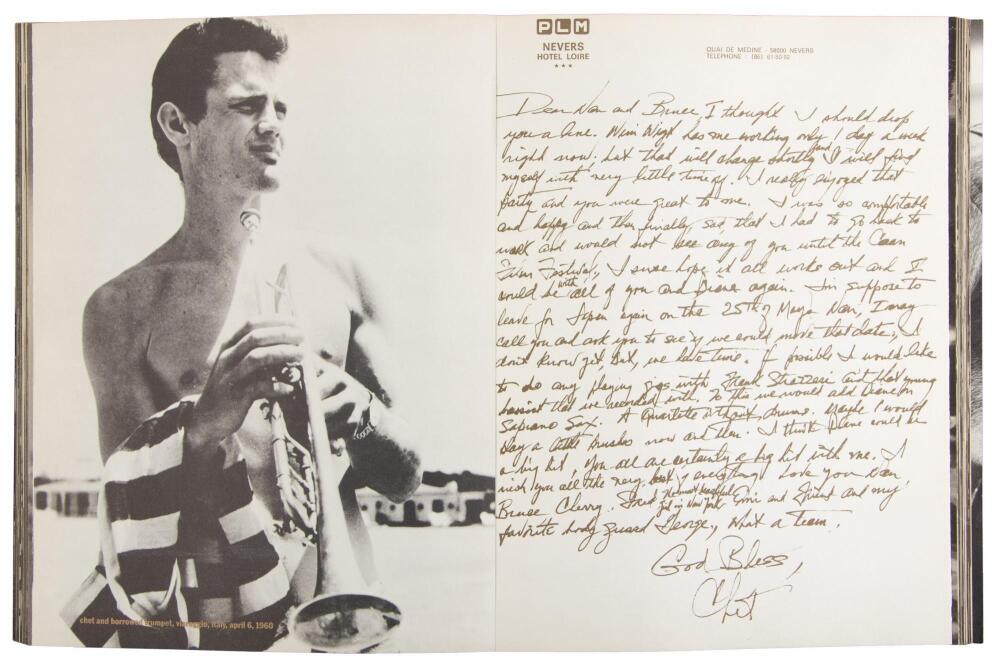 chet and borrowed trumpet, viareggio, italy, april 6, 1960
PLM
NEVERS
HOTEL LOIRE
★★★
QUAI DE MEDINE - 58000 NEVERS
TELEPHONE : (86) 61-50-92
Dear Nan and Bruce, I thought I should drop
you a line. Wim Wigt has me working only 1 day a week
right now, but that will change shortly and I will find
myself with very little time off. I really enjoyed that
party and you were great to me. I was so comfortable
and happy and then finally, sad, that I had to go back to
work and would not see any of you until the Cann
Film Festival, I sure hope it all works out and I
could be with all of you and Diane again. I'm suppose to
leave for Japan again on the 25th of May Nan, I may
call you and ask you to see if we could move that date, I
don't know yet, but, we have time. If posible I would like
to do any playing gigs with Frank Strazzeri and that young
bassist that we recorded with. To this we would add Diane on
Saprano Sax. A Quartette without drums. Maybe I would
play a little brushes now and then. I think Diane would be
a big hit, you all are certainly a big hit with me. I
wish you all the very best of everything. Love you Nan
Bruce Cherry. the most beautiful
girl in New York and my
favorite body guard George, what a team.
God Bless,
Chet